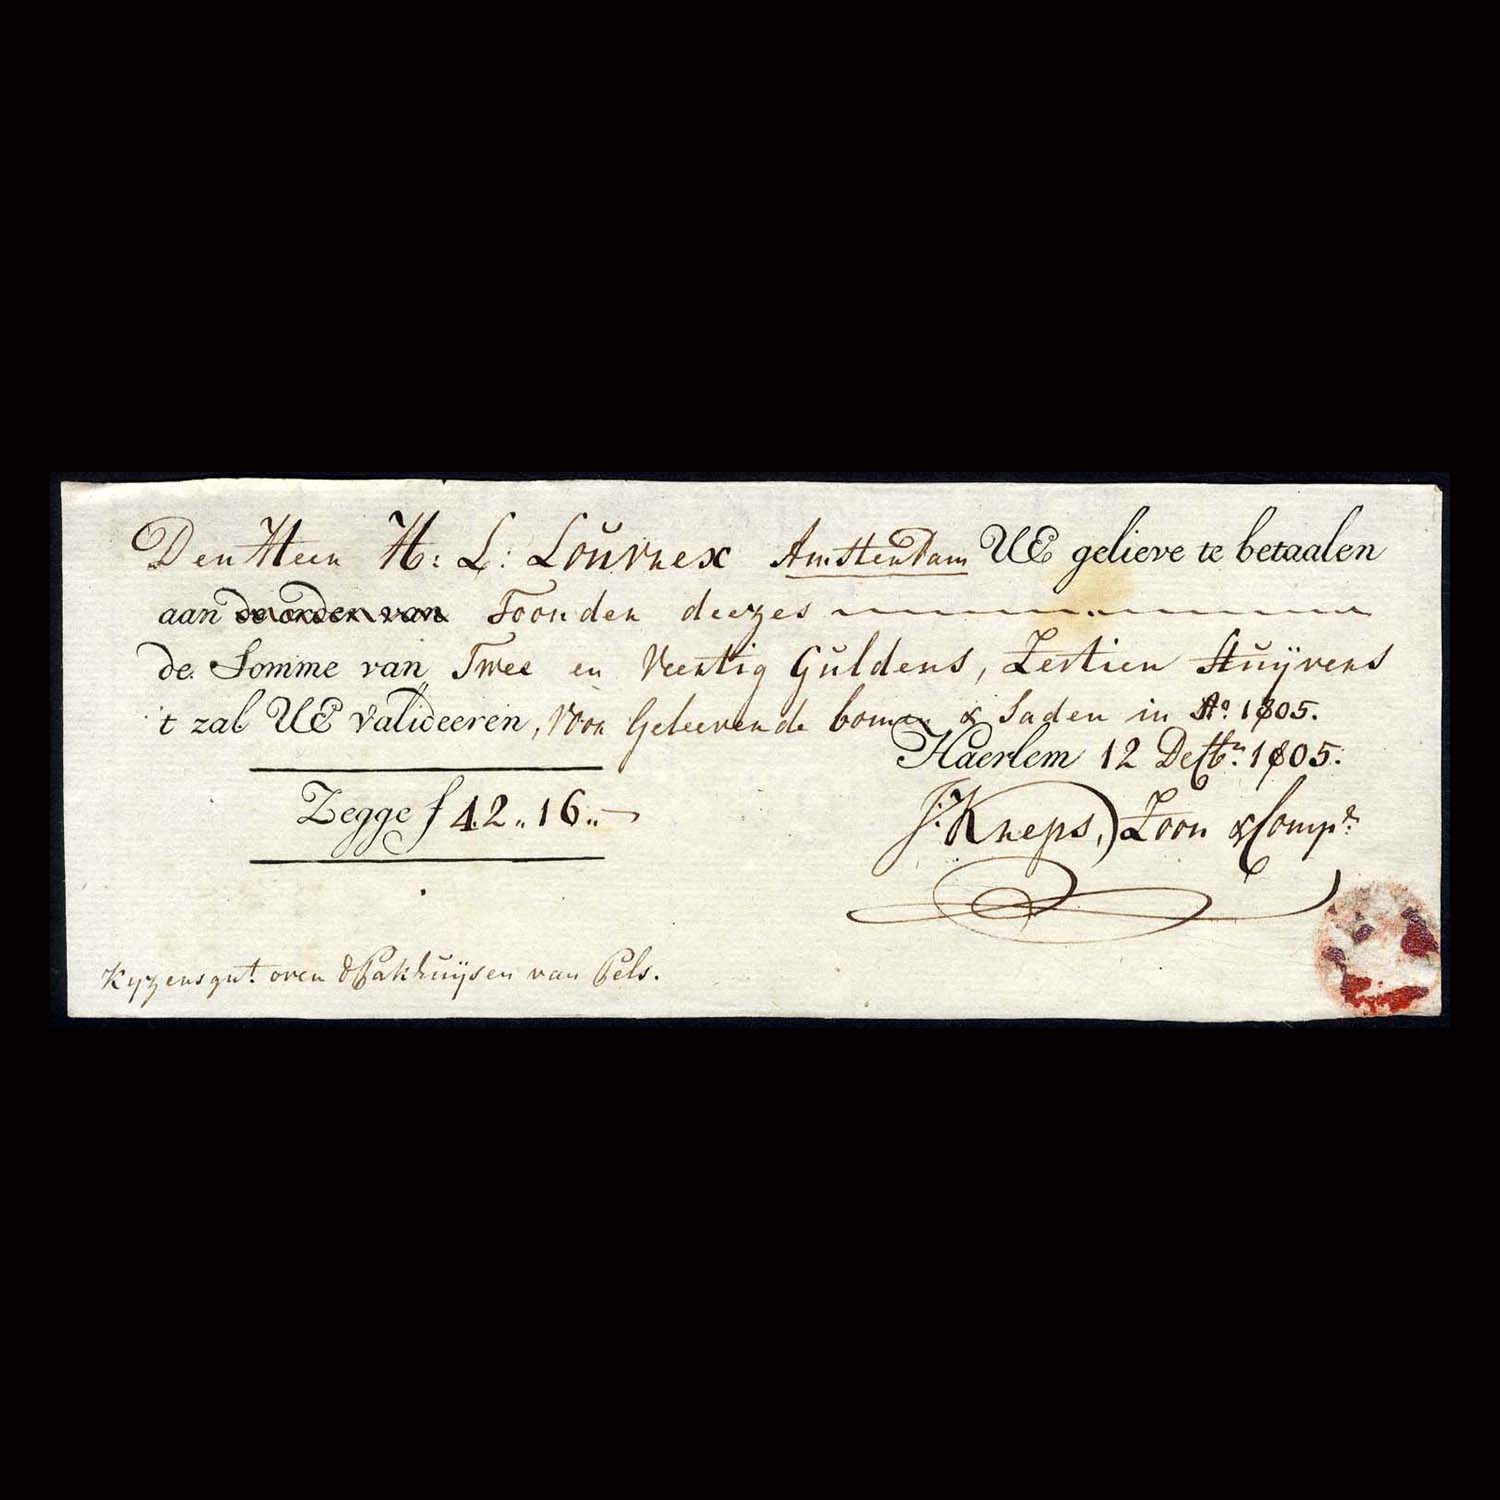 Den Heer H: L: Louvrex Amsterdam UE gelieve te betaalen
aan de order van Toonder deezes
de Somme van Twee en Veertig Guldens, Zestien Stuyvers
't zal UE valideeren, Voor Geleeverde bomen & Saden in Aº. 1805.
Haerlem 12 Decbr. 1805.
Zegge f 42.. 16..
J: Kreps, Zoon & Compe.
Kyzersgrt. over d Pakhuijsen van Pels.